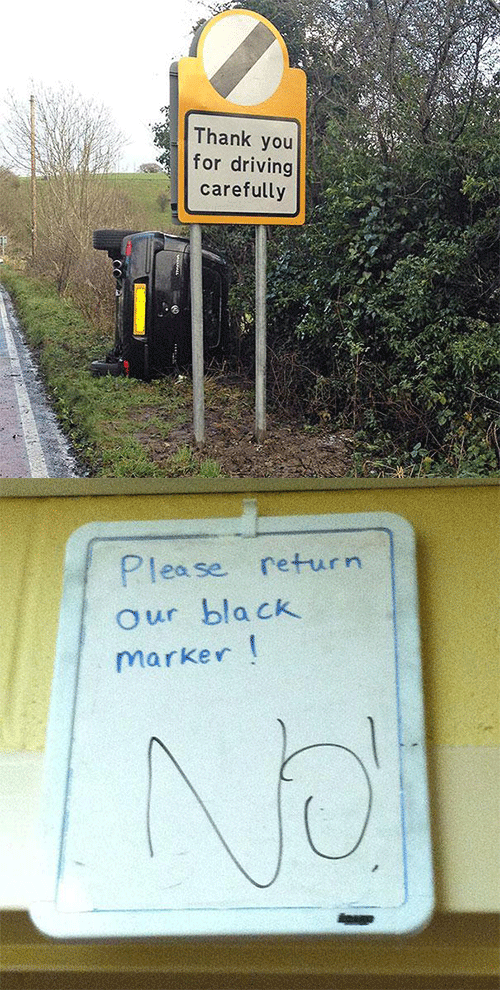 Thank you
for driving
carefully
Please return
our black
marker !
NO!